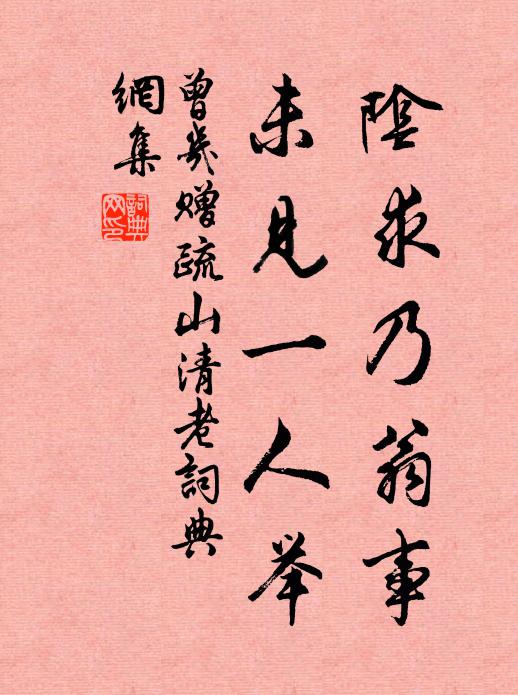 陰求乃翁事
未見一人举
曾幾赠疏山清老詞典
網集
詞典
网印